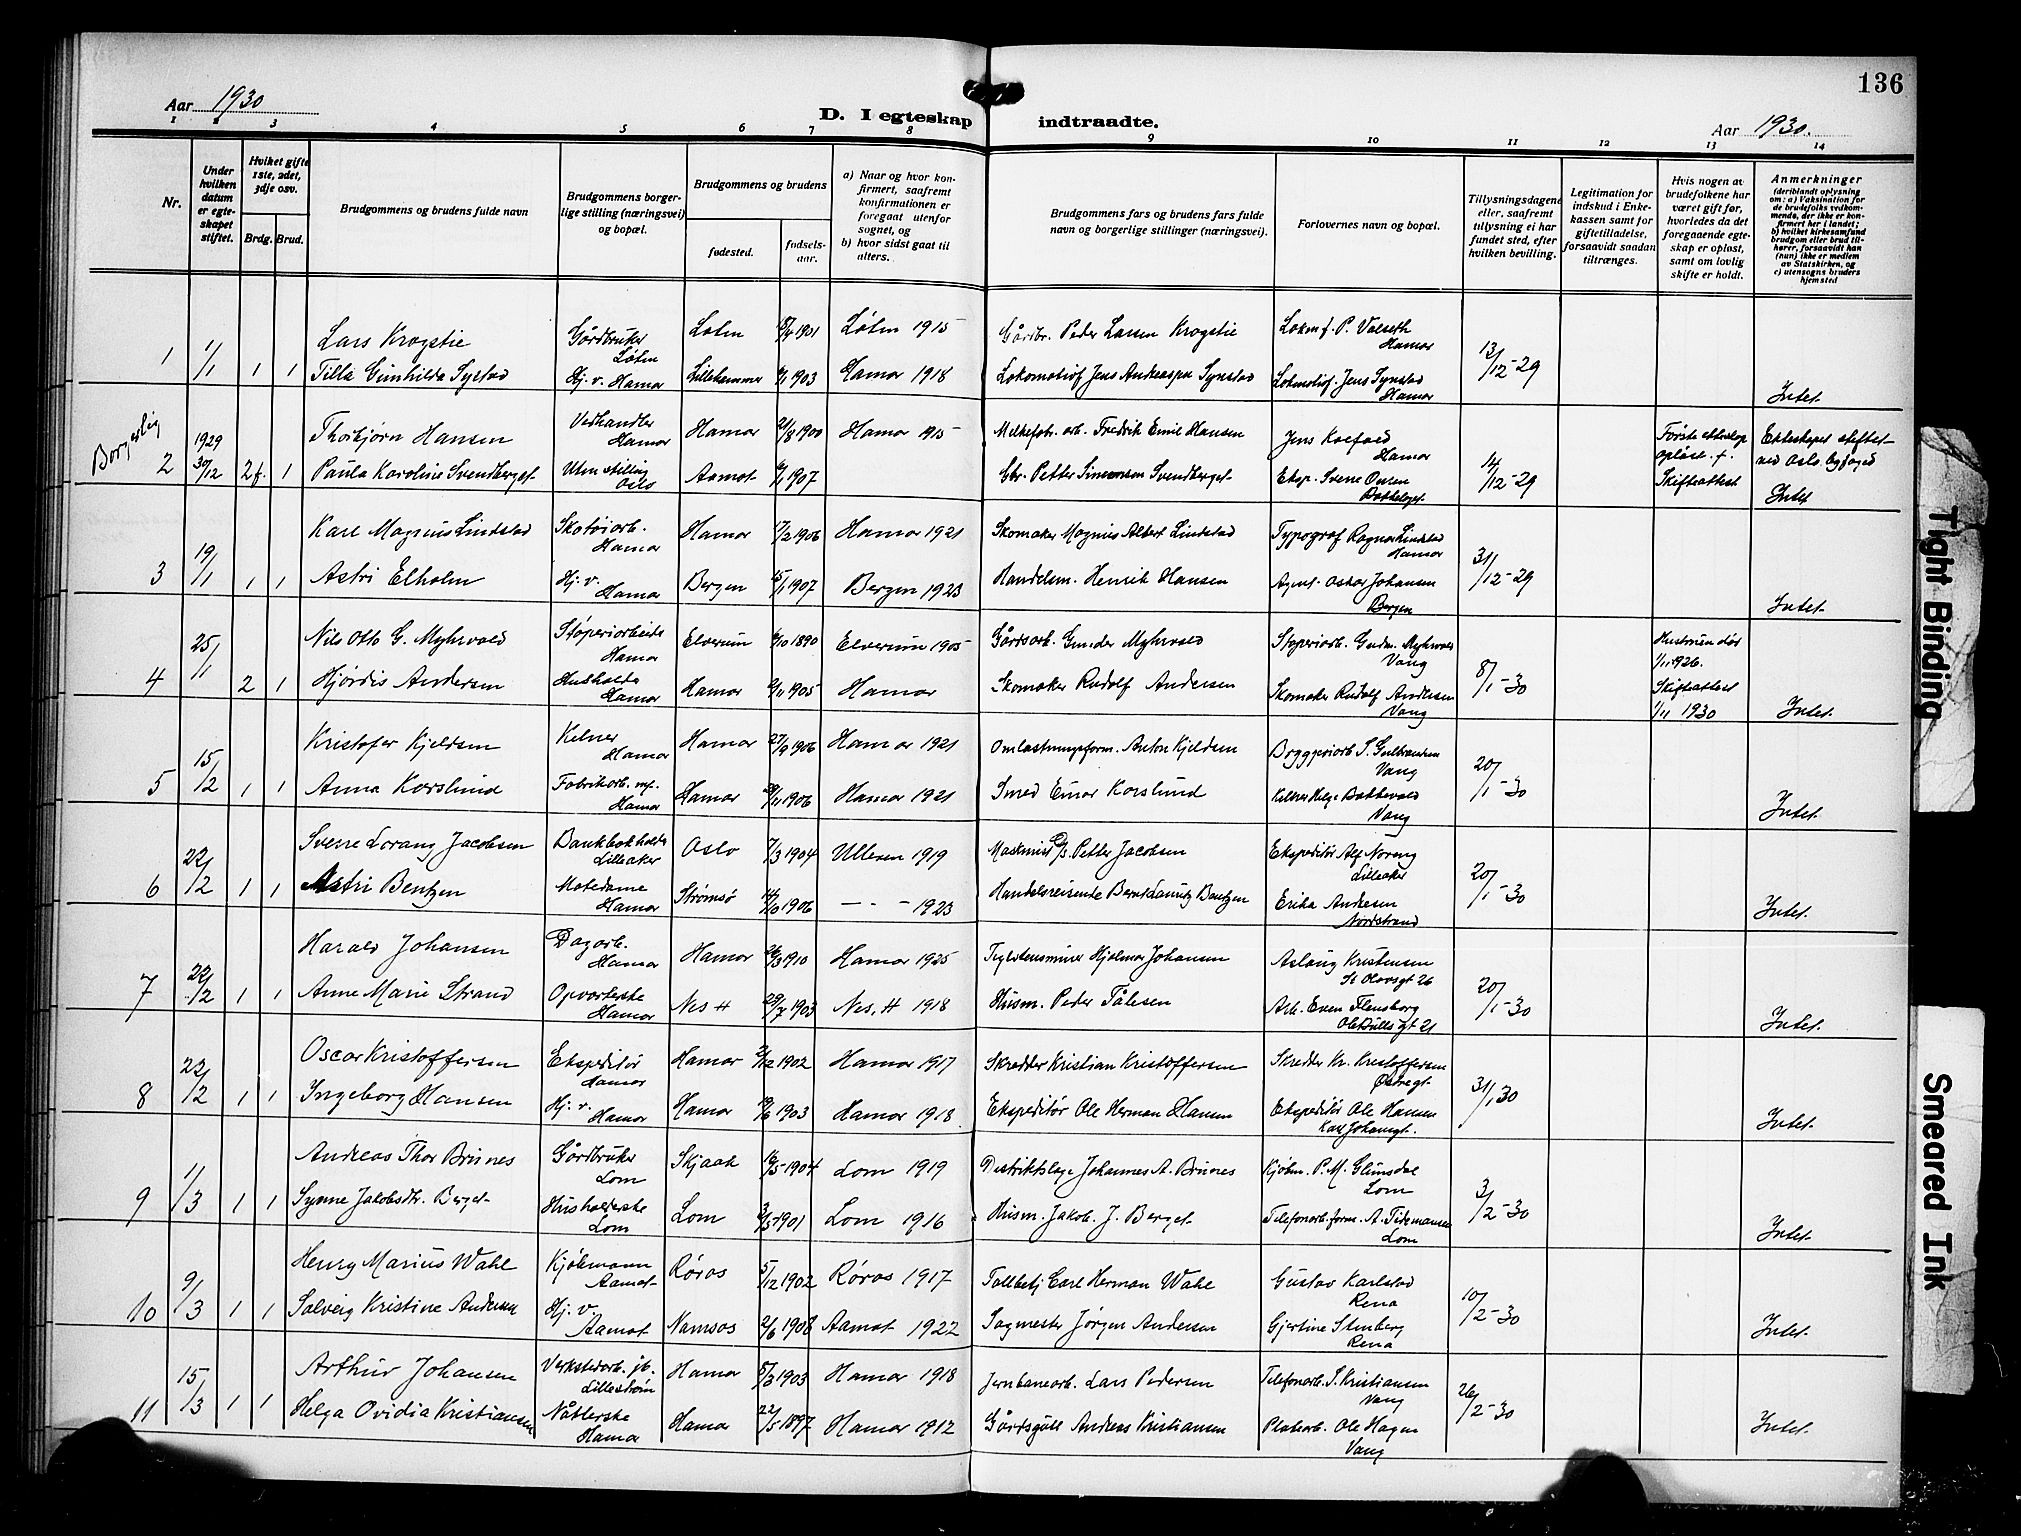 136
Aar 1930
D. I egteskap indtraadte.
Aar 1930.
1 2 3 4 5 6 7 8 9 10 11 12 13 14
Nr.
Under hvilken datum er egteskapet stiftet.
Hviket gifte 1ste, 2det, 3dje osv.
Brdg. Brud.
Brudgommens og brudens fulde navn
Brudgommens borgerlige stilling (næringsvei) og bopæl.
Brudgommens og brudens
fødested.
fødselsaar.
a) Naar og hvor konfirmert, saafremt konfirmationen er foregaat utenfor sognet, og
b) hvor sidst gaat til alters.
Brudgommens fars og brudens fars fulde navn og borgerlige stillinger (næringsvei).
Forlovernes navn og bopæl.
Tillysningsdagene eller, saafremt tillysning ei har fundet sted, efter hvilken bevilling.
Legitimation for indskud i Enkekassen samt for giftetilladelse, forsaavidt saadan tiltrænges.
Hvis nogen av brudefolkene har været gift før, hvorledes da det foregaaende egteskap er opløst, samt om lovlig skifte er holdt.
Anmerkninger
(deriblandt oplysning om: a) Vaksination for de brudefolks vedkommende, der ikke er konfirmert her i landet; b) hvilket kirkesamfund brudgom eller brud tilhører, forsaavidt han (hun) ikke er medlem av Statskirken, og c) utensogns bruders hjemsted
1 1/1 1 1
Lars Krogstie Gårdbruker Løten Løten 1901 Løten 1915 Gårdbr. Peder Larsen Krogstie Lokmf. P. Valseth Hamar
Tilla Gunhilda Synstad Hj. v. Hamar Lillehammer 1903 Hamar 1918 Lokomotivf Jens Andreasen Synstad Lokmotivf. Jens Synstad Hamar 13/12-29 Intet
Borgerlig
2 1929 30/12 2f. 1
Thorbjørn Hansen Vedhandler Hamar Hamar 21/8 1900 Hamar 1915 Melkefobr. arb. Fredrik Emil Hansen Jens Koefoed Hamar
Paula Karoline Svendberget Uten stilling Oslo Aamot 1907 Gbr. Petter Simensen Svendberget Eksp. Sverre Onsen 14/12-29 Første ekteskap opløst. f. Skifteattest Ekteskapet stiftet ved Oslo byfoged Intet
3 19/1 1 1
Karl Magnus Lindstad Skotøiarb. Hamar Hamar 17/2 1906 Hamar 1921 Skomaker Magnus Albert Lindstad Typograf Ragnar Lindstad Hamar
Astri Elholm Hj. v. Hamar Bergen 15/1 1907 Bergen 1923 Handelsm. Henrik Hansen Agent Oskar Johansen Bergen 31/12-29 Intet.
4 25/1 2 1
Nils Otto G. Myhrvold Støperiarbeider Hamar Elverum 1890 Elverum 1905 Gårdsarb. Gunder Myhrvold Støperiarb. Gudm. Myhrvold Vang
Hjørdis Andersen Husholder Hamar Hamar 1905 Hamar Skomaker Rudolf Andersen Skomaker Rudolf Andersen Vang 8/1-30 Hustruen død 1/11 1926. Skifteattest 1/11 1930 Intet.
5 15/2 1 1
Kristofer Kjeldsen Kelner Hamar Hamar 27/9 1906 Hamar 1921 Omlastningsform. Anton Kjeldsen Bryggeriarb S. Gulbrandsen Vang
Anna Korslund Fabrikarb. Hamar Hamar 1906 Hamar 1921 Smed Einar Korslund Kelner Helge Bakkevold Vang 20/1-30 Intet.
6 22/2 1 1
Sverre Lorang Jacobsen Bankbokholder Lilleaker Oslo 7/3 1904 Ullern 1919 Maskinist Petter Jacobsen Ekspeditør Alf Noreng Lilleaker
Astri Bentzen Motedame Hamar Strømsø 14/10 1906 - - - 1923 Handelsreisende Bernt Lauritz Bentzen Erika Andresen Nordstrand 20/1-30 Intet.
7 22/2 1 1
Harald Johansen Dagarb. Hamar Hamar 26/3 1910 Hamar 1925 Teglstensmurer Hjalmar Johansen Aslaug Kristensen St Olavsgt 26
Anne Marie Strand Opvarterske Hamar Nes H 29/7 1903 Nes, H 1918 Husm. Peder Tålesen Arb. Even Flensborg Ole Bulls gt 21 20/1-30 Intet.
8 22/2 1 1
Oscar Kristoffersen Ekspeditør Hamar Hamar 3/12 1902 Hamar 1917 Skredder Kristian Kristoffersen Skredder Kr. Kristoffersen Østregt.
Ingeborg Hansen Hj. v. Hamar Hamar 19/6 1903 Hamar 1918 Ekspeditør Ole Herman Hansen Ekspeditør Ole Hansen Karl Johansgt. 31/1 30 Intet.
9 1/3 1 1
Andreas Thor Brunes Gårdbruker Lom Skjaak 16/5-1904 Lom 1919 Distriktslæge Johannes A. Brunes Kjøbm. P. M. Glimsdal Lom
Synne Jakobsdtr. Berget Husholderske Lom Lom 1901 Lom 1916 Husm. Jakob J. Berget Telefonarb. form. A. Tidemansen Lom 3/2-30 Intet.
10 9/3 1 1
Henry Marius Wahl Kjøbmann Aamot Røros 5/12 1902 Røros 1917 Tollbetj Carl Herman Wahl Gustav Karlstad Rena
Solveig Kristine Andersen Hj. v. Aamot Namsos 2/6 1908 Aamot 1922 Sagmester Jørgen Andersen Gjertine Stenberg Rena 10/2-30 Intet.
11 15/3 1 1
Arthur Johansen Verkstedarb. jb. Lillestrøm Hamar 5/8 1903 Hamar 1918 Jernbanearb. Lars Pedersen Telefonarb. S. Kristiansen Vang
Helga Ovidia Kristiansen Nåtlerske Hamar Hamar 22/5 1897 Hamar 1912 Gårdsgutt Andreas Kristiansen Platearb. Ole Hagen Vang 26/2-30 Intet.
Tight Binding
Smeared Ink